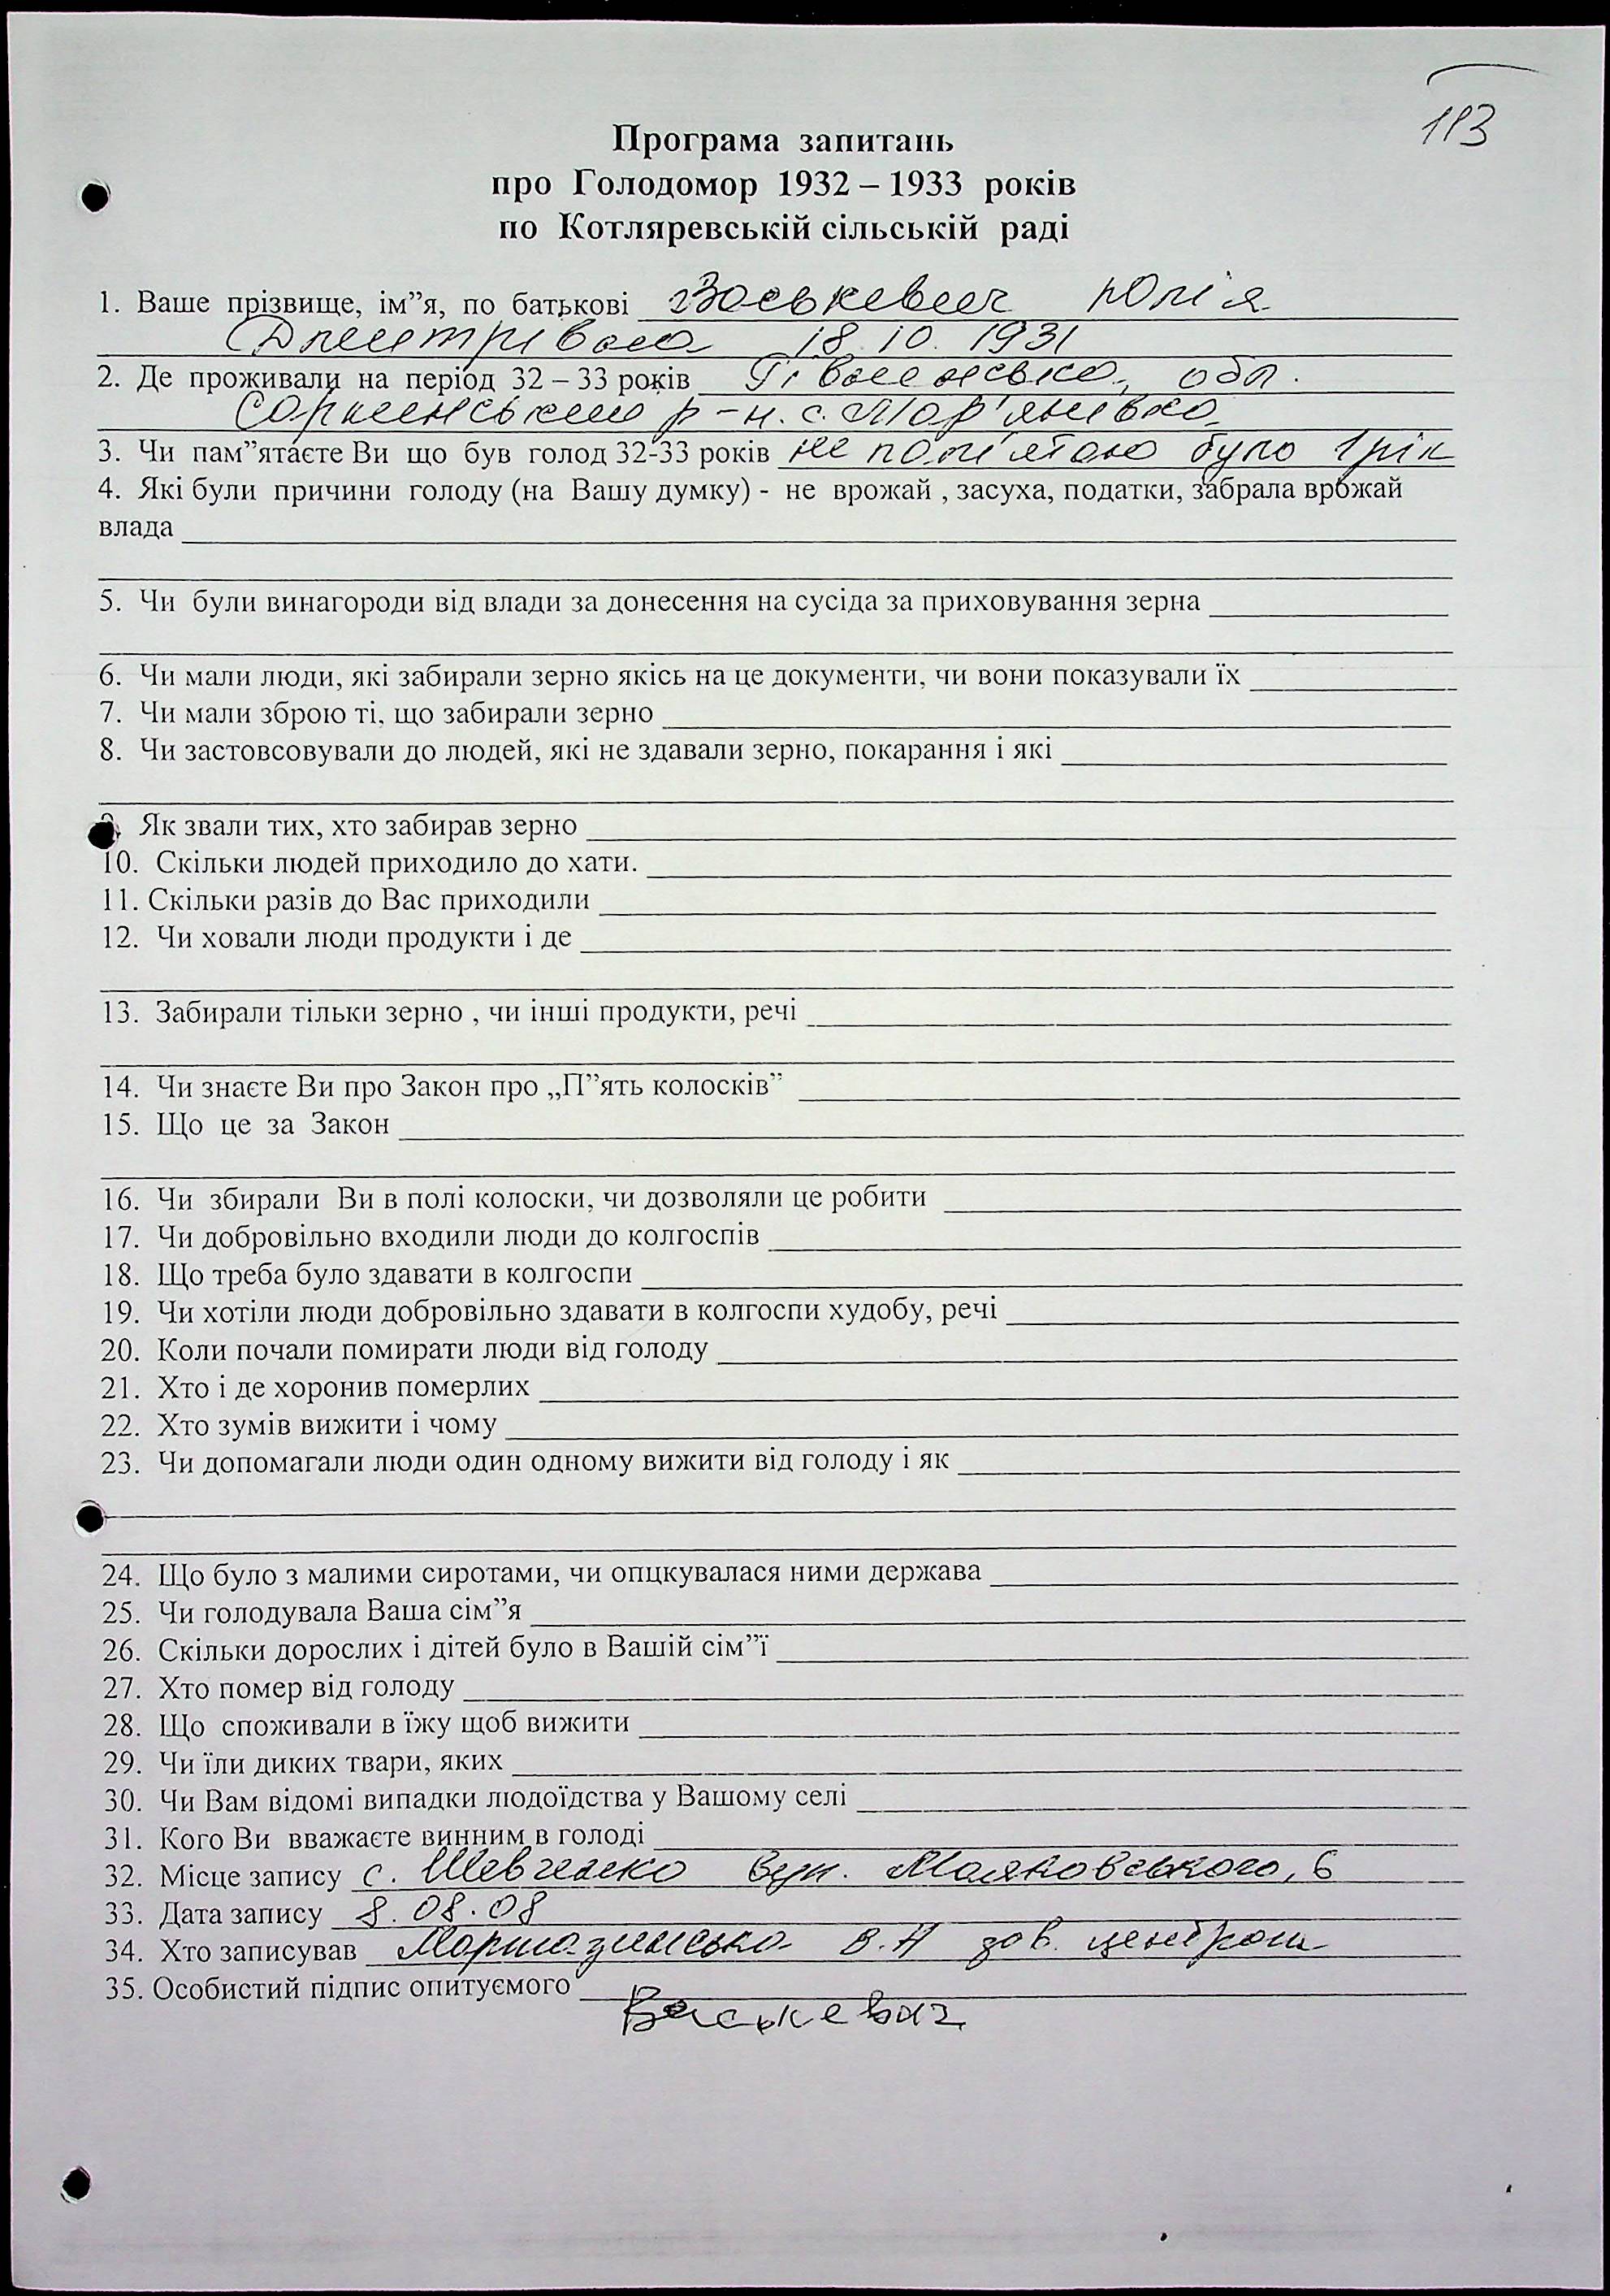 113
Програма запитань
про Голодомор 1932 – 1933 років
по Котляревській сільській раді
1. Ваше прізвище, ім”я, по батькові Воськевич Юлія
Дмитрівна 18.10.1931
2. Де проживали на період 32 – 33 років Рівненська, обл.
р-н. с. Мар'янівка
3. Чи пам”ятаєте Ви що був голод 32-33 років не пам'ятаю було 1 рік
4. Які були причини голоду (на Вашу думку) - не врожай , засуха, податки, забрала врожай
влада
5. Чи були винагороди від влади за донесення на сусіда за приховування зерна
6. Чи мали люди, які забирали зерно якісь на це документи, чи вони показували їх
7. Чи мали зброю ті, що забирали зерно
8. Чи застовсовували до людей, які не здавали зерно, покарання і які
9. Як звали тих, хто забирав зерно
10. Скільки людей приходило до хати.
11. Скільки разів до Вас приходили
12. Чи ховали люди продукти і де
13. Забирали тільки зерно , чи інші продукти, речі
14. Чи знаєте Ви про Закон про „П”ять колосків”
15. Що це за Закон
16. Чи збирали Ви в полі колоски, чи дозволяли це робити
17. Чи добровільно входили люди до колгоспів
18. Що треба було здавати в колгоспи
19. Чи хотіли люди добровільно здавати в колгоспи худобу, речі
20. Коли почали помирати люди від голоду
21. Хто і де хоронив померлих
22. Хто зумів вижити і чому
23. Чи допомагали люди один одному вижити від голоду і як
24. Що було з малими сиротами, чи опцкувалася ними держава
25. Чи голодувала Ваша сім”я
26. Скільки дорослих і дітей було в Вашій сім”ї
27. Хто помер від голоду
28. Що споживали в їжу щоб вижити
29. Чи їли диких твари, яких
30. Чи Вам відомі випадки людоїдства у Вашому селі
31. Кого Ви вважаєте винним в голоді
32. Місце запису с. Шевченко вул. Маяковського, 6
33. Дата запису 8.08.08
34. Хто записував В.А зав. центром
35. Особистий підпис опитуємого
Васькевич